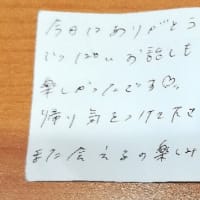 今日はありがとう
いお話しも
楽しかったです♡。
帰り気をつけて下さ
また会えるの楽しみ